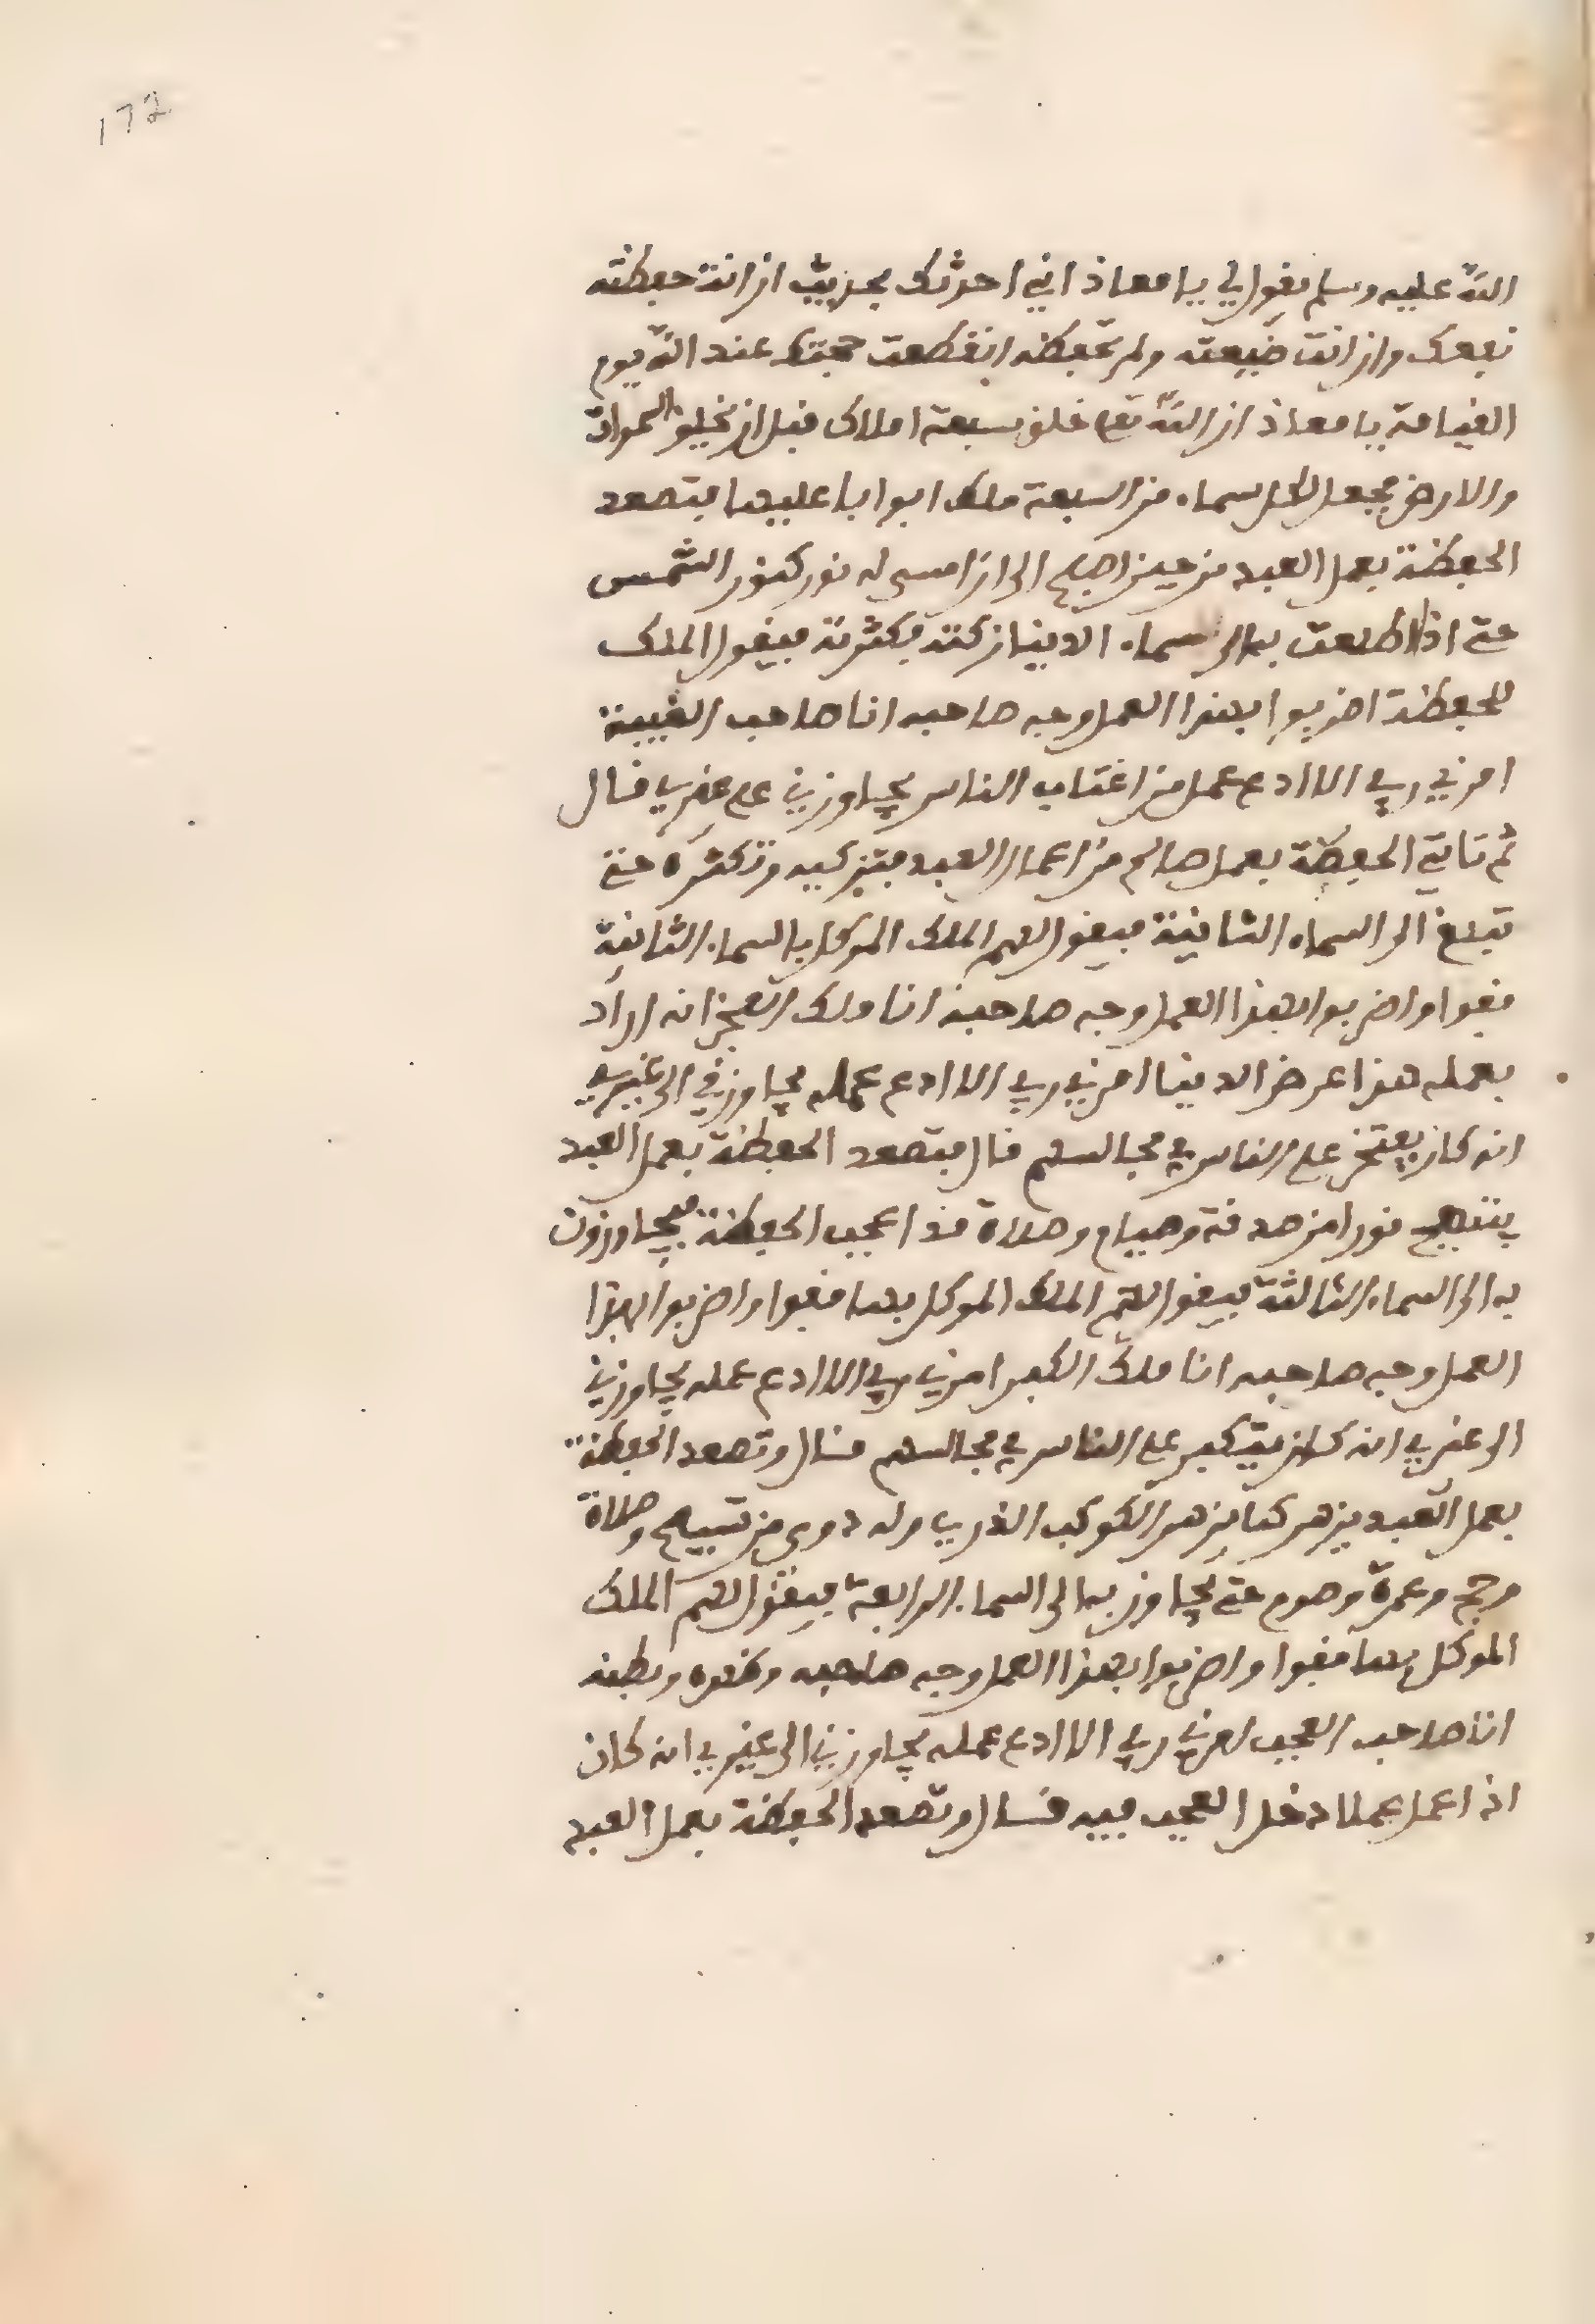 172
الله عليه وسلم يقول لي يا معاذ اني احدثك بحديث ان انت حفظته
نفعك وان انت ضيعته ولم تحفظه انقطعت حجتك عند الله يوم
القيامة يا معاذ ان الله تع خلق سبعة املاك قبل ان يخلق السموات
والارض فجعل لكل سماء من السبعة ملك ابوابا عليها فتصعد
الحفظة بعمل العبد من حين اصبح الى ان امسى له نور كنور الشمس
حتى اذا طلعت به الى سماء الدنيا زكته فكثرته فيقول الملك
للحفظة اضربوا بهذا العمل وجه صاحبه انا صاحب الغيبة
امرني ربي الا ادع عمل من اغتاب الناس يجاوزني على غيري قال
ثم تاتي الحفظة بعمل صالح من اعمال العبد فتزكيه وتكثره حتى
تبلغ الى السماء الثانية فيقول لهم الملك الموكل بالسماء الثانية
قفوا واضربوا بهذا العمل وجه صاحبه انا ملك الفخر انه اراد
بعمله هذا عرض الدنيا امرني ربي الا ادع عمله يجاوزني الى غيري
انه كان يفتخر على الناس في مجالسهم قال فتصعد الحفظة بعمل العبد
يبتهج نورا من صدقة وصيام وصلاة قد اعجب الحفظة فيجاوزون
به الى السماء الثالثة فيقول لهم الملك الموكل بها قفوا واضربوا بهذا
العمل وجه صاحبه انا ملك الكبر امرني ربي الا ادع عمله يجاوزني
الى غيري انه كان يتكبر على الناس في مجالسهم قال وتصعد الحفظة
بعمل العبد يزهر كما يزهر الكوكب الذري وله دوى من تسبيح وصلاة
وحج وعمرة وصوم حتى يجاوز به الى السماء الرابعة فيقول لهم الملك
الموكل بها قفوا واضربوا بهذا العمل وجه صاحبه وظهره وبطنه
انا صاحب العجب امرني ربي الا ادع عمله يجاوزني الى غيري انه كان
اذا عمل عملا دخل العجب فيه قال وتصعد الحفظة بعمل العبد